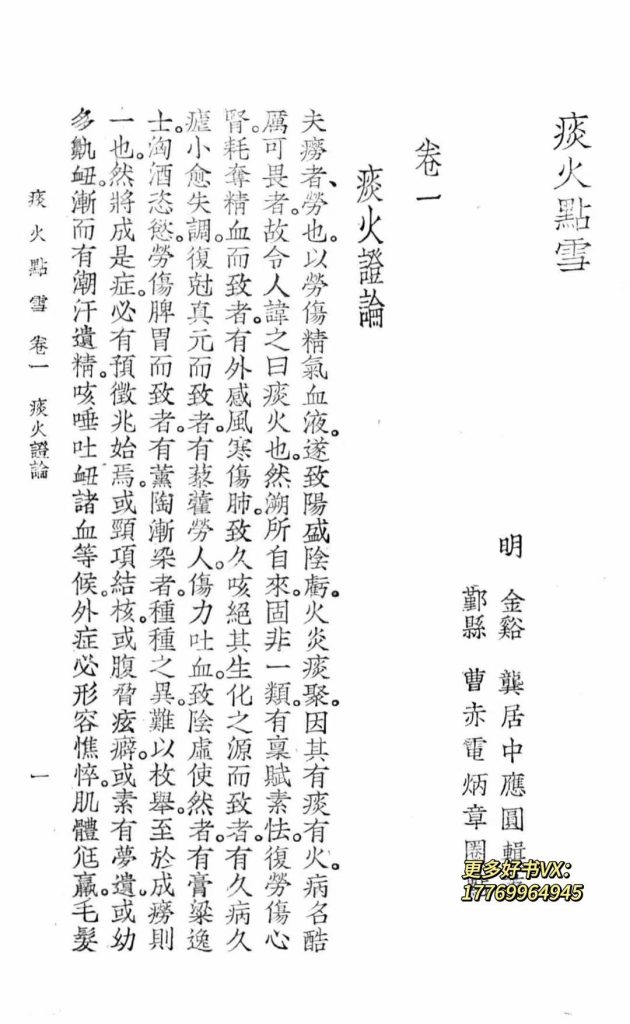 痰火點雪
明 金谿 龔居中應圓輯
鄞縣 曹赤電炳章圈
卷一
痰火證論
夫癆者、勞也。以勞傷精氣血液。遂致陽盛陰虧。火炎痰聚。因其有痰有火。病名酷
厲可畏者。故令人諱之曰痰火也。然溯所自來。固非一類。有稟賦素怯。復勞傷心
腎。耗奪精血而致者。有外感風寒傷肺。致久咳絕其生化之源而致者。有久病久
瘧小愈失調。復尅真元而致者。有藜藿勞人。傷力吐血。致陰虛使然者。有膏粱逸
士。淘酒恣慾。勞傷脾胃而致者。有薰陶漸染者。種種之異。難以枚舉。至於成癆則
一也。然將成是症。必有預徵兆始焉。或頸項結核。或腹脅痃癖。或素有夢遺。或幼
多鼽衄。漸而有潮汗遺精。咳唾吐衄諸血等候。外症必形容憔悴。肌體尪羸。毛髮
痰火點雪 卷一 痰火證論
一
更多好书VX:
17769964945